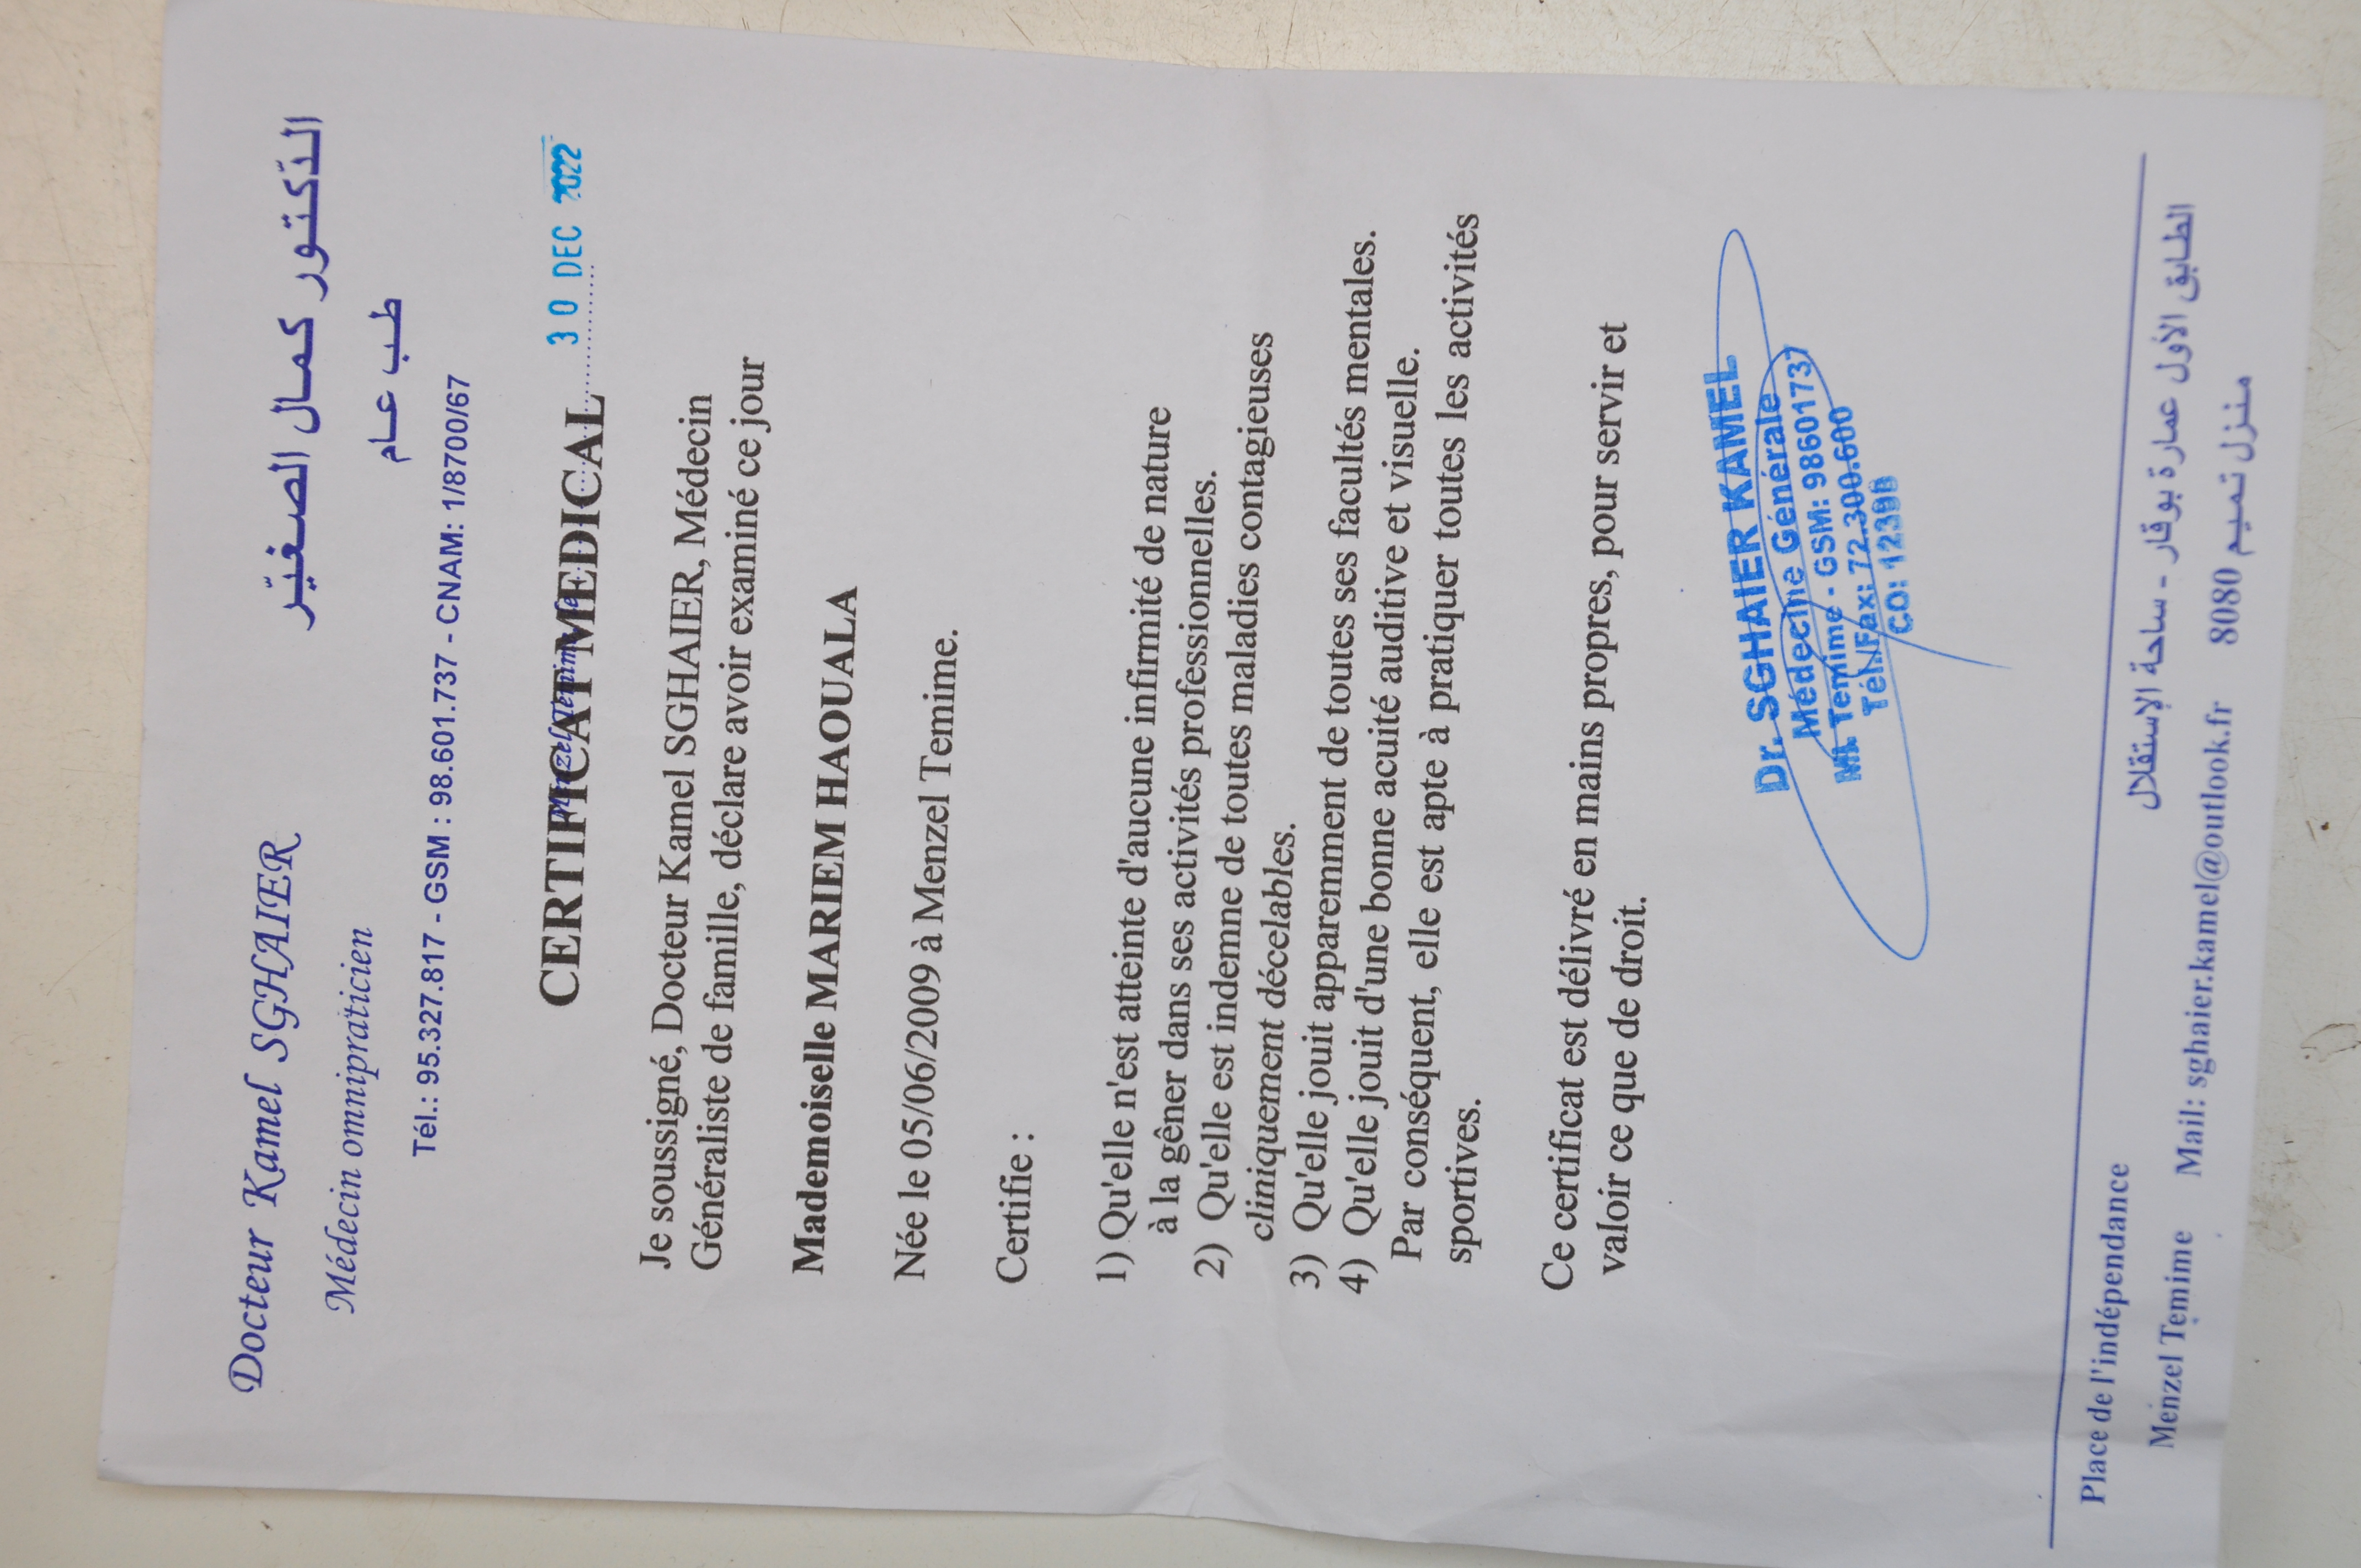 Docteur Kamel SGHAIER
الدّكتور كمال الصغيّر
Médecin omnipraticien
طب عام
Tél.: 95.327.817 - GSM : 98.601.737 - CNAM: 1/8700/67
Menzel Temime le 30 DEC 2022
CERTIFICAT MEDICAL
Je soussigné, Docteur Kamel SGHAIER, Médecin
Généraliste de famille, déclare avoir examiné ce jour
Mademoiselle MARIEM HAOUALA
Née le 05/06/2009 à Menzel Temime.
Certifie :
1) Qu'elle n'est atteinte d'aucune infirmité de nature
à la gêner dans ses activités professionnelles.
2) Qu'elle est indemne de toutes maladies contagieuses
cliniquement décelables.
3) Qu'elle jouit apparemment de toutes ses facultés mentales.
4) Qu'elle jouit d'une bonne acuité auditive et visuelle.
Par conséquent, elle est apte à pratiquer toutes les activités
sportives.
Ce certificat est délivré en mains propres, pour servir et
valoir ce que de droit.
Dr. SGHAIER KAMEL
Médecine Générale
M. Temime - GSM: 98601737
Tél./Fax: 72.300.600
CO: 12398
Place de l'indépendance
الطابق الأول عمارة بوقار - ساحة الإستقلال
Menzel Temime Mail: sghaier.kamel@outlook.fr 8080 منزل تميم